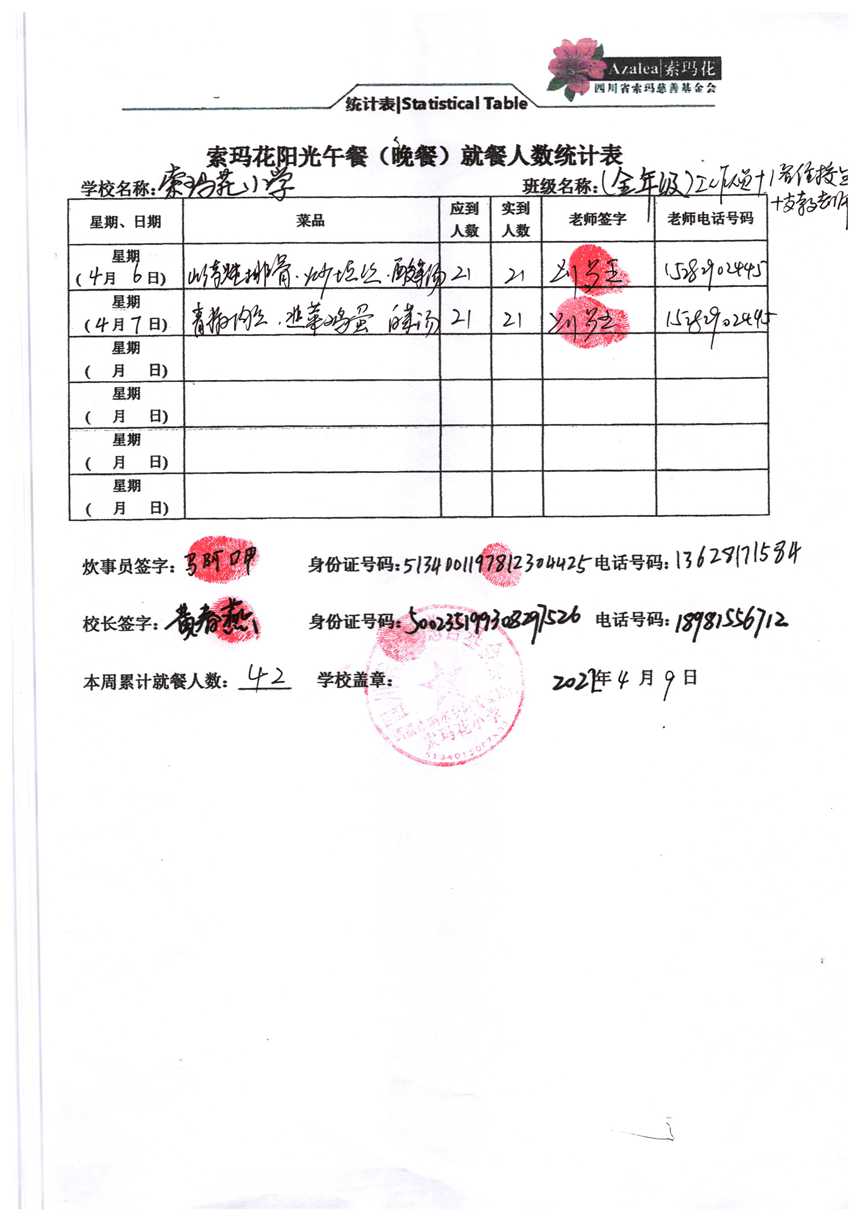 Azalea|索玛花
四川省索玛慈善基金会
统计表|Statistical Table
索玛花阳光午餐（晚餐）就餐人数统计表
学校名称:索玛花小学 班级名称:(全年级)工作人员+寄住校生
+支教老师
星期、日期 菜品 应到人数 实到人数 老师签字 老师电话号码
星期
(4月 6日) 排骨、炒土豆丝、酸菜汤 21 21 15282902445
星期
(4月7日) 青椒肉丝、韭菜鸡蛋 白菜汤 21 21 15282902445
星期
( 月 日)
星期
( 月 日)
星期
( 月 日)
星期
( 月 日)
炊事员签字: 马阿呷 身份证号码:5134001197812304425 电话号码:13628171584
校长签字: 黄春燕 身份证号码:500235199308297526 电话号码:18981556712
本周累计就餐人数: 42 学校盖章: 2021年 4月 9日
索玛花小学